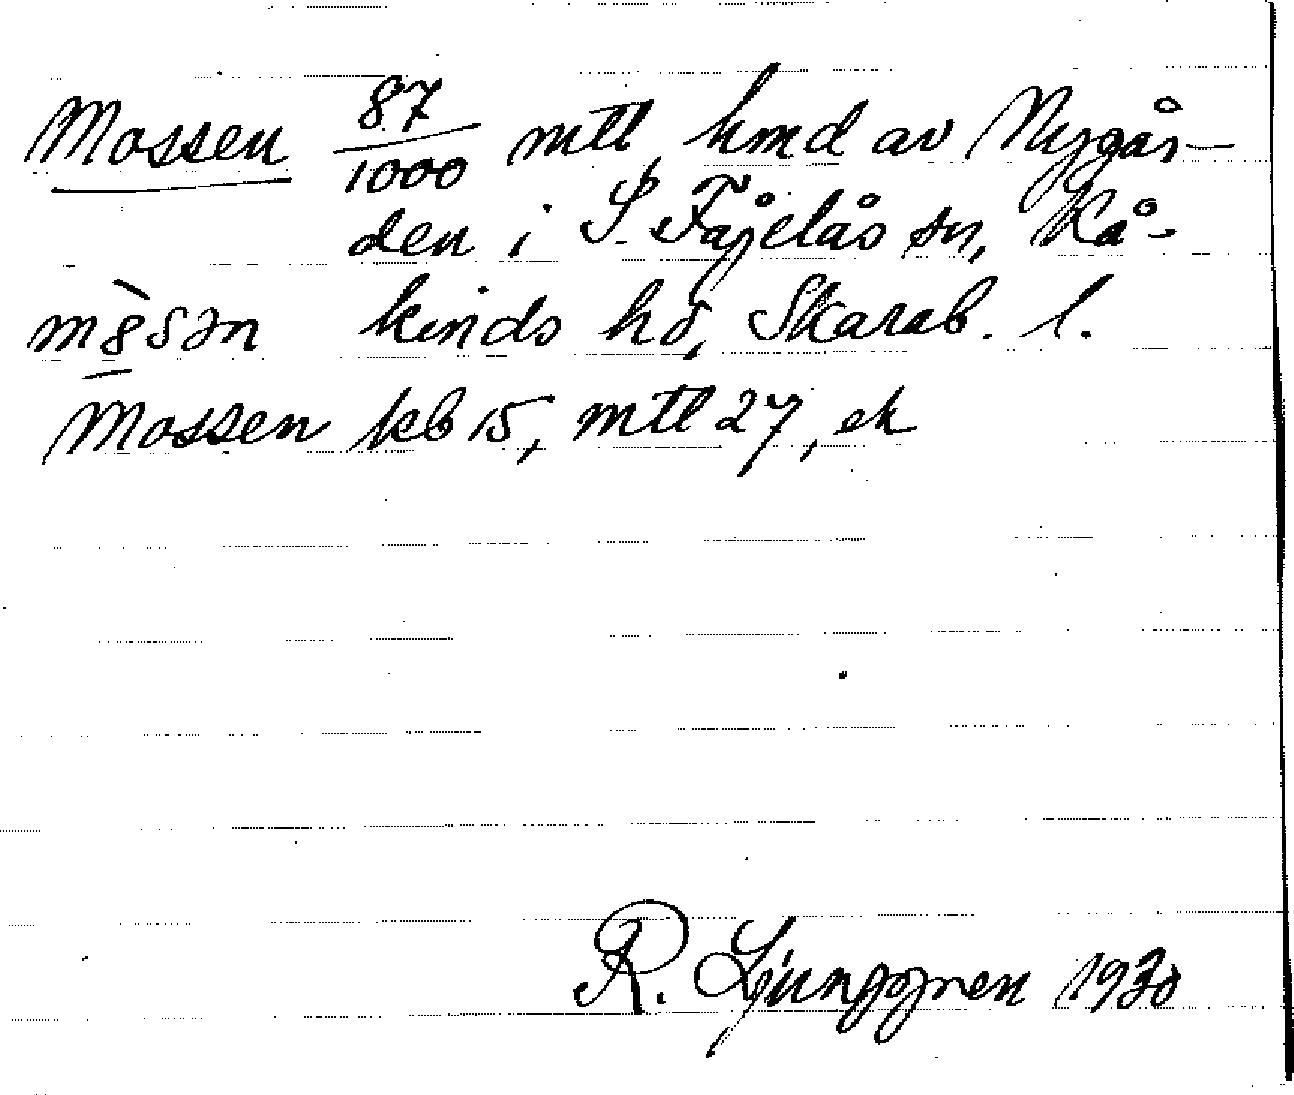 Mossen 87/1000 mtl, hmd av Nygår-
den i S. Fågelås sn, Kå-
mȣ̀sən kinds hd, Skarab. l.
Mossen kb 15, mtl 27, ek
R. Ljunggren 1930